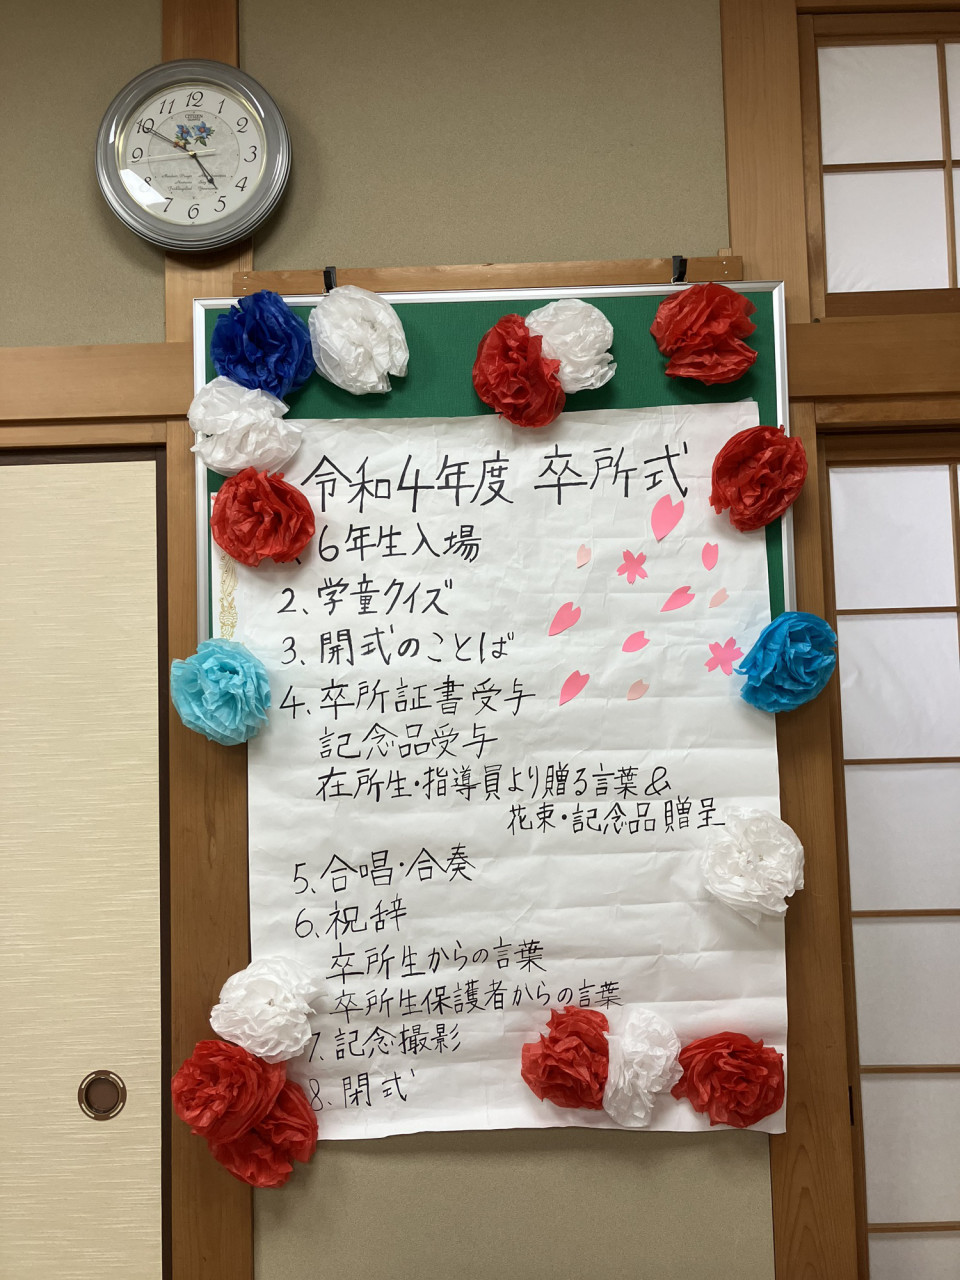 12
1
2
3
4
5
6
7
8
9
10
11
CITIZEN
令和4年度 卒所式
6年生入場
2、学童クイズ
3、開式のことば
4、卒所証書受与
記念品受与
在所生・指導員より贈る言葉&
花束・記念品贈呈
5、合唱・合奏
6、祝辞
卒所生からの言葉
卒所生保護者からの言葉
7、記念撮影
8、閉式